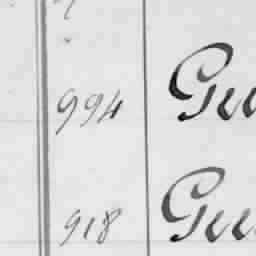 994 Gu
918 Gu